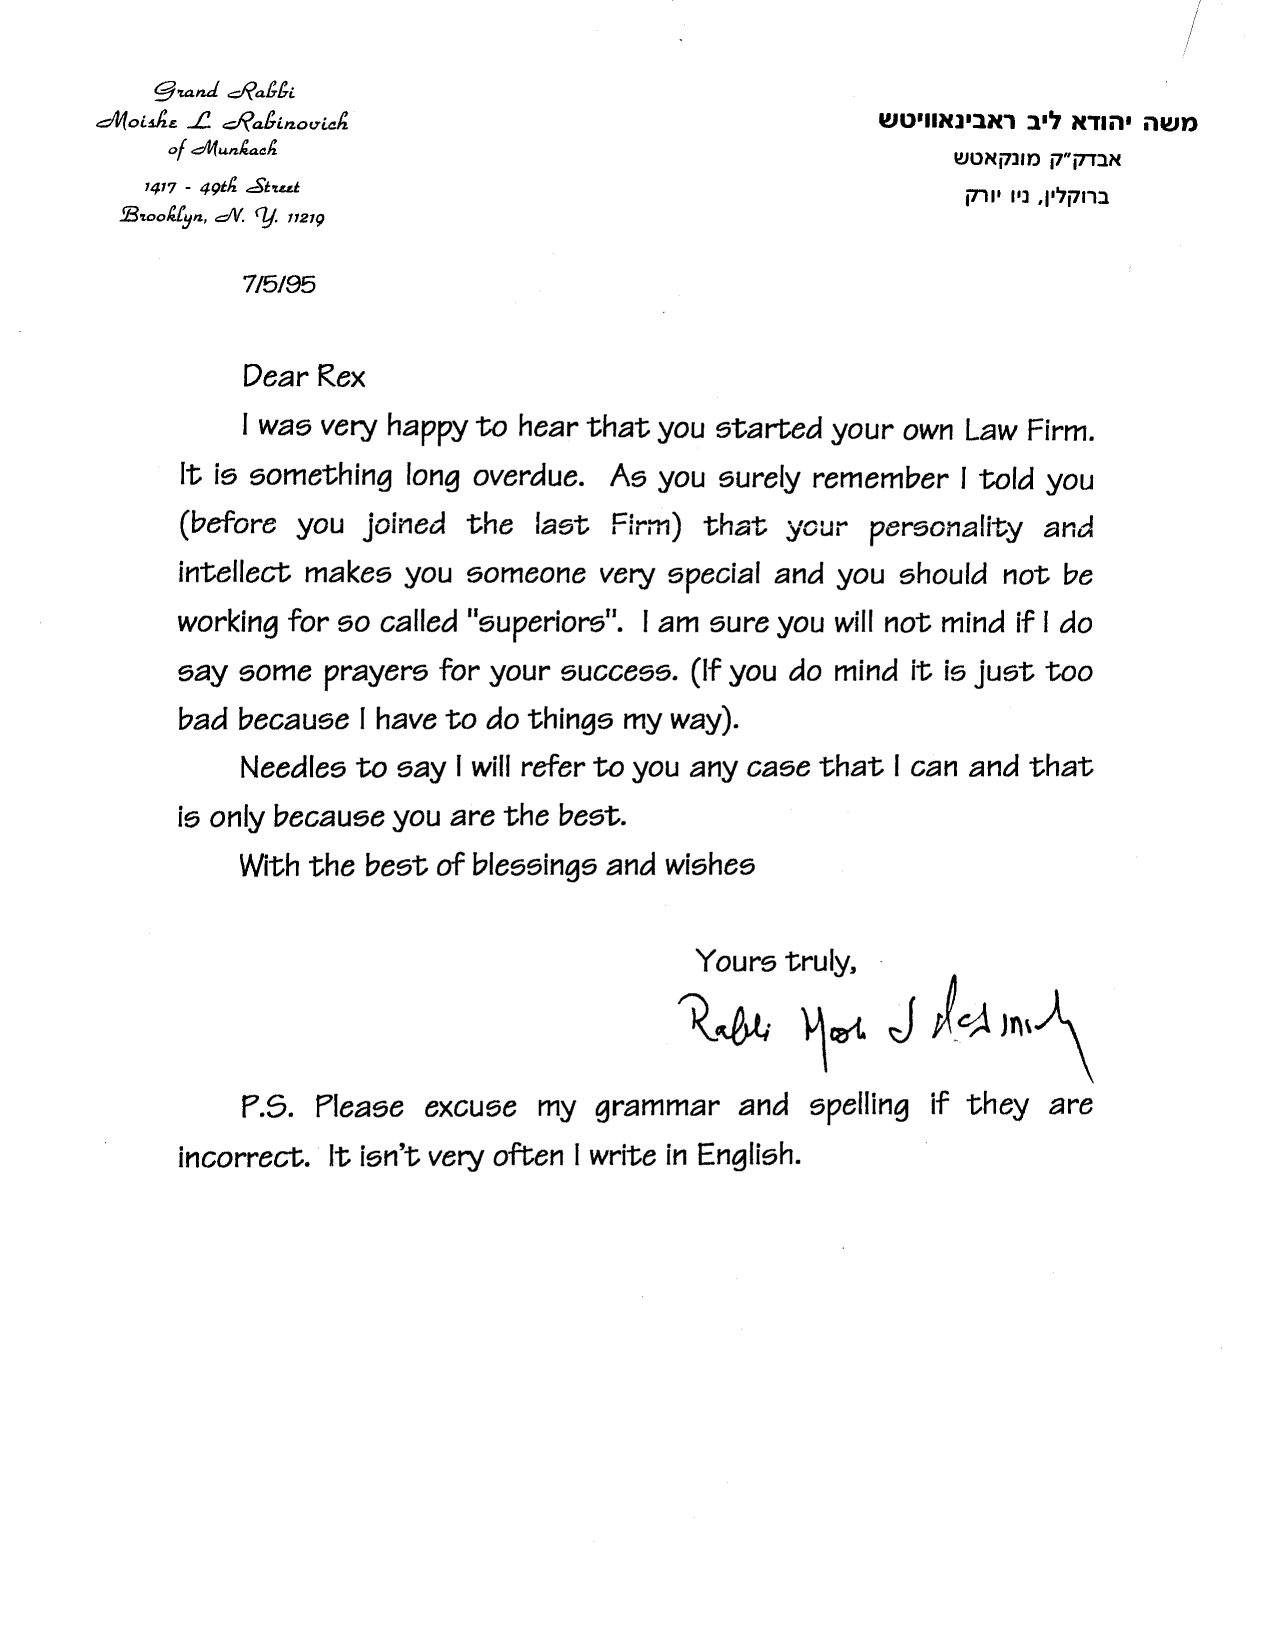 Grand Rabbi
Moishe L. Rabinovich
of Munkach
1417 - 49th Street
Brooklyn, N. Y. 11219
משה יהודא ליב ראבינאוויטש
אבדק״ק מונקאטש
ברוקלין, ניו יורק
7/5/95
Dear Rex
I was very happy to hear that you started your own Law Firm.
It is something long overdue. As you surely remember I told you
(before you joined the last Firm) that your personality and
intellect makes you someone very special and you should not be
working for so called "superiors". I am sure you will not mind if I do
say some prayers for your success. (If you do mind it is just too
bad because I have to do things my way).
Needles to say I will refer to you any case that I can and that
is only because you are the best.
With the best of blessings and wishes
Yours truly,
Rabbi
P.S. Please excuse my grammar and spelling if they are
incorrect. It isn't very often I write in English.